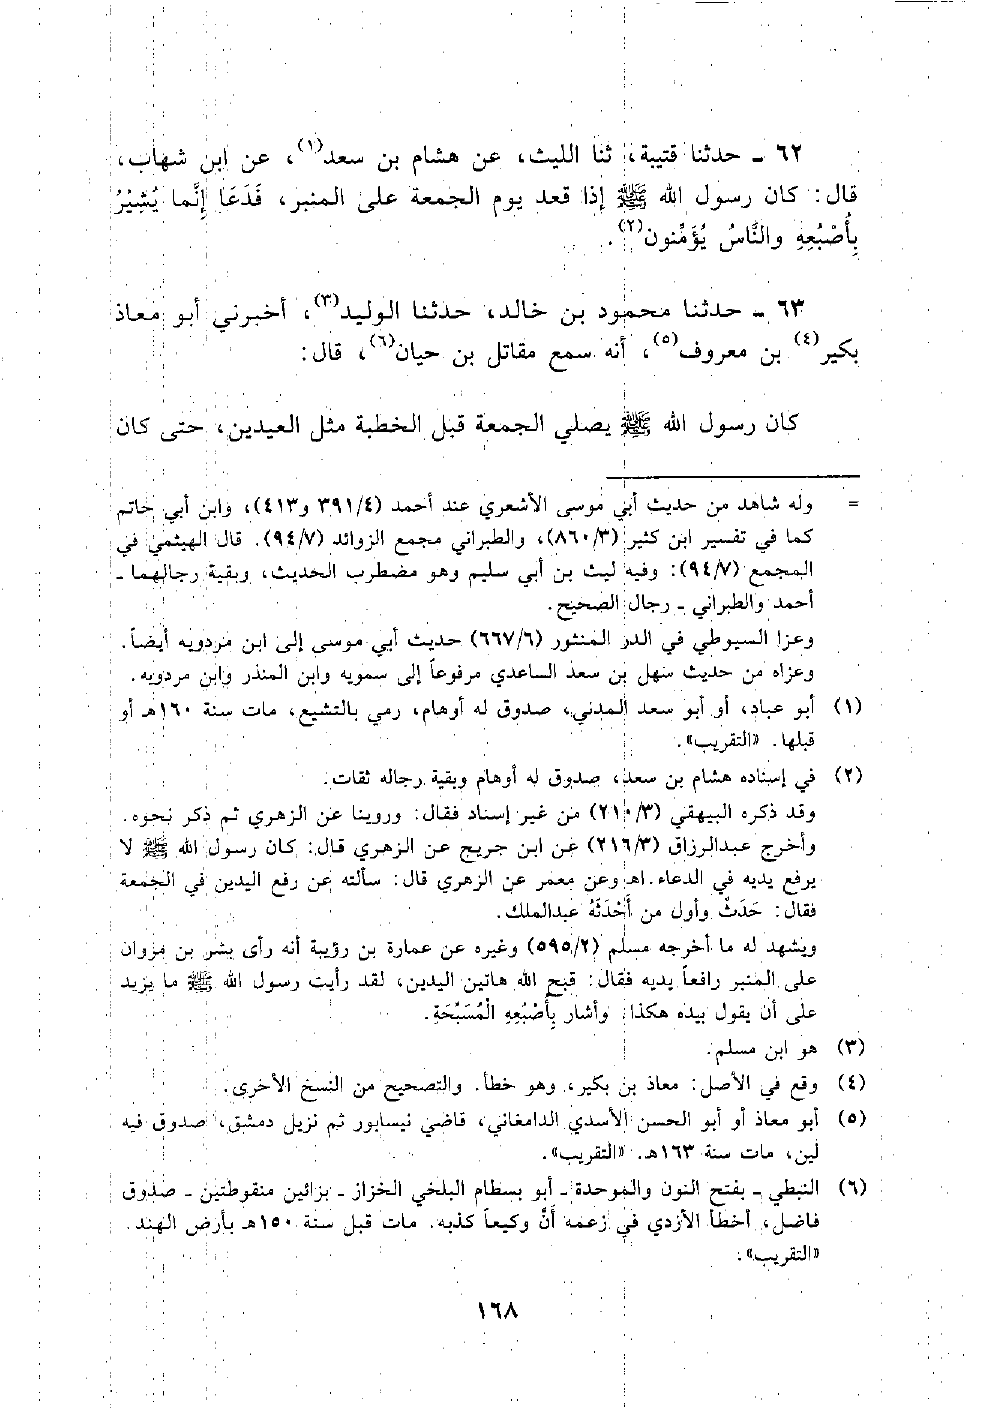 ٦٢ ـ حدثنا قتيبة، ثنا الليث، عن هشام بن سعد(١)، عن ابن شهاب،
قال: كان رسول الله ﷺ إذا قعد يوم الجمعة على المنبر، فَدَعَا إِنَّما يُشِيْرُ
بِأَصْبُعِهِ والنَّاسُ يُؤَمِّنون(٢).
٦٣ ـ حدثنا محمود بن خالد، حدثنا الوليد(٣)، أخبرني أبو معاذ
بكير(٤) بن معروف(٥)، أنه سمع مقاتل بن حيان(٦)، قال:
كان رسول الله ﷺ يصلي الجمعة قبل الخطبة مثل العيدين، حتى كان
= وله شاهد من حديث أبي موسى الأشعري عند أحمد (٣٩١/٤ و٤١٣)، وابن أبي حاتم
كما في تفسير ابن كثير (٨٦٠/٣)، والطبراني مجمع الزوائد (٩٤/٧). قال الهيثمي في
المجمع (٩٤/٧): وفيه ليث بن أبي سليم وهو مضطرب الحديث، وبقية رجالهما ـ
أحمد والطبراني ـ رجال الصحيح.
وعزا السيوطي في الدر المنثور (٦٦٧/٦) حديث أبي موسى إلى ابن مردويه أيضاً.
وعزاه من حديث سهل بن سعد الساعدي مرفوعاً إلى سمويه وابن المنذر وابن مردويه.
(١) أبو عباد، أو أبو سعد المدني، صدوق له أوهام، رمي بالتشيع، مات سنة ١٦٠هـ أو
قبلها. «التقريب».
(٢) في إسناده هشام بن سعد، صدوق له أوهام وبقية رجاله ثقات.
وقد ذكره البيهقي (٢١٠/٣) من غير إسناد فقال: وروينا عن الزهري ثم ذكر نحوه.
وأخرج عبدالرزاق (٢١٦/٣) عن ابن جريج عن الزهري قال: كان رسول الله ﷺ لا
يرفع يديه في الدعاء.اهـ وعن معمر عن الزهري قال: سألته عن رفع اليدين في الجمعة
فقال: حَدَثٌ وأول من أَحْدَثَهُ عبدالملك.
ويشهد له ما أخرجه مسلم (٥٩٥/٢) وغيره عن عمارة بن رؤيبة أنه رأى بشر بن مروان
على المنبر رافعاً يديه فقال: قبح الله هاتين اليدين، لقد رأيت رسول الله ﷺ ما يزيد
على أن يقول بيده هكذا: وأشار بِأَصْبُعِهِ الْمُسَبِّحَةِ.
(٣) هو ابن مسلم.
(٤) وقع في الأصل: معاذ بن بكير، وهو خطأ. والتصحيح من النسخ الأخرى.
(٥) أبو معاذ أو أبو الحسن الأسدي الدامغاني، قاضي نيسابور ثم نزيل دمشق، صدوق فيه
لين، مات سنة ١٦٣هـ. «التقريب».
(٦) النبطي ـ بفتح النون والموحدة ـ أبو بسطام البلخي الخزاز ـ بزائين منقوطتين ـ صدوق
فاضل، أخطأ الأزدي في زعمه أنَّ وكيعاً كذبه. مات قبل سنة ١٥٠هـ بأرض الهند.
«التقريب».
١٦٨